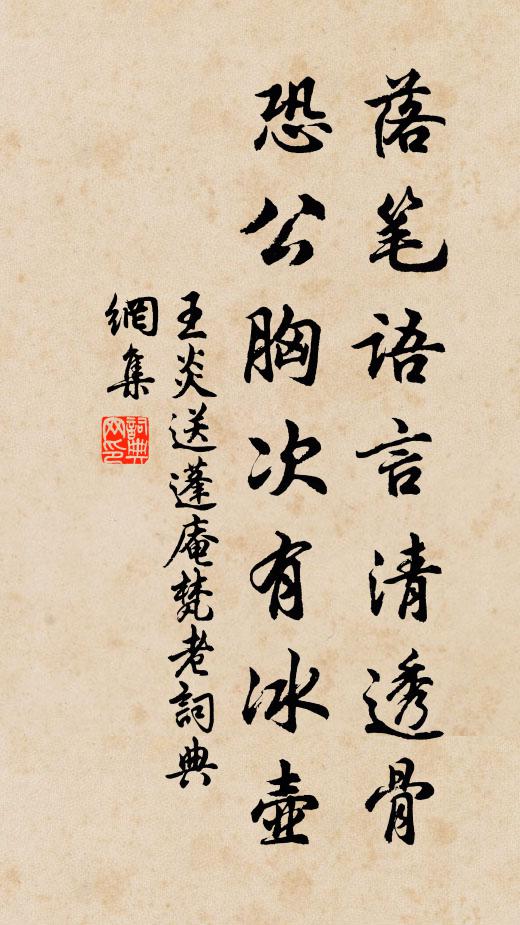 落笔语言清透骨
恐公胸次有冰壺
王炎送蓬庵梵老詞典
網集
詞典
网印